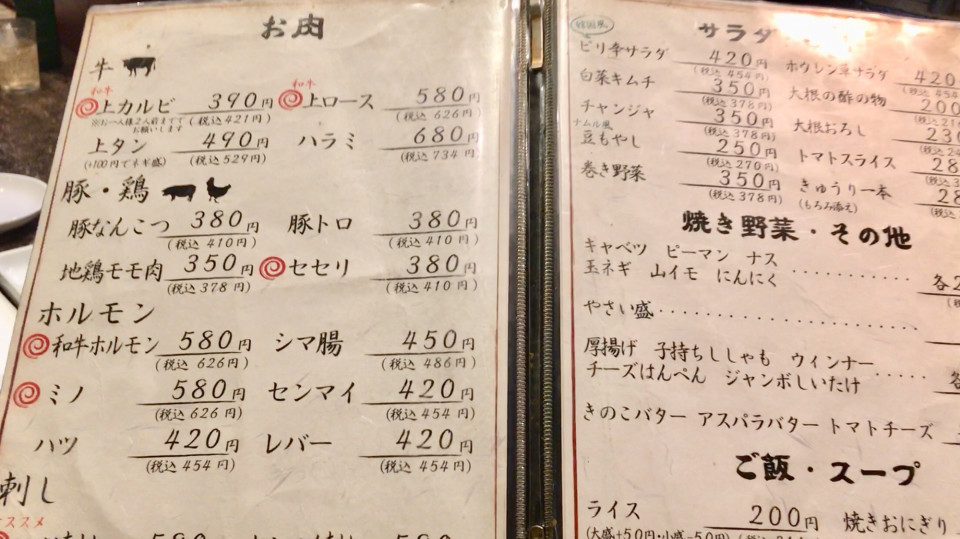 お肉
牛
和牛 上カルビ 390円 (税込421円)
※お一人様2人前までで お願いします
和牛 上ロース 580円 (税込 626円)
上タン 490円 (税込529円)
(+100円でネギ盛)
ハラミ 680円 (税込 734円)
豚・鶏
豚なんこつ 380円 (税込 410円)
豚トロ 380円 (税込 410円)
地鶏モモ肉 350円 (税込 378円)
セセリ 380円 (税込 410円)
ホルモン
和牛ホルモン 580円 (税込 626円)
シマ腸 450円 (税込 486円)
ミノ 580円 (税込 626円)
センマイ 420円 (税込 454円)
ハツ 420円 (税込 454円)
レバー 420円 (税込 454円)
刺し
ススメ
サラダ
韓国風
ピリ辛サラダ 420円 (税込 454円)
白菜キムチ 350円 (税込378円)
チャンジャ 350円 (税込378円)
ナムル風
豆もやし 250円 (税込270円)
巻き野菜 350円 (税込378円)
ホウレン草サラダ 420
大根の酢の物 200
大根おろし 230
トマトスライス 28
きゅうり一本 28
(もろみ添え)
焼き野菜・その他
キャベツ ピーマン ナス
玉ネギ 山イモ にんにく 各2
やさい盛
厚揚げ 子持ちししゃも ウィンナー
チーズはんぺん ジャンボしいたけ 各
きのこバター アスパラバター トマトチーズ
ご飯・スープ
ライス 200円
(大盛+50円・小盛-50円)
焼きおにぎり